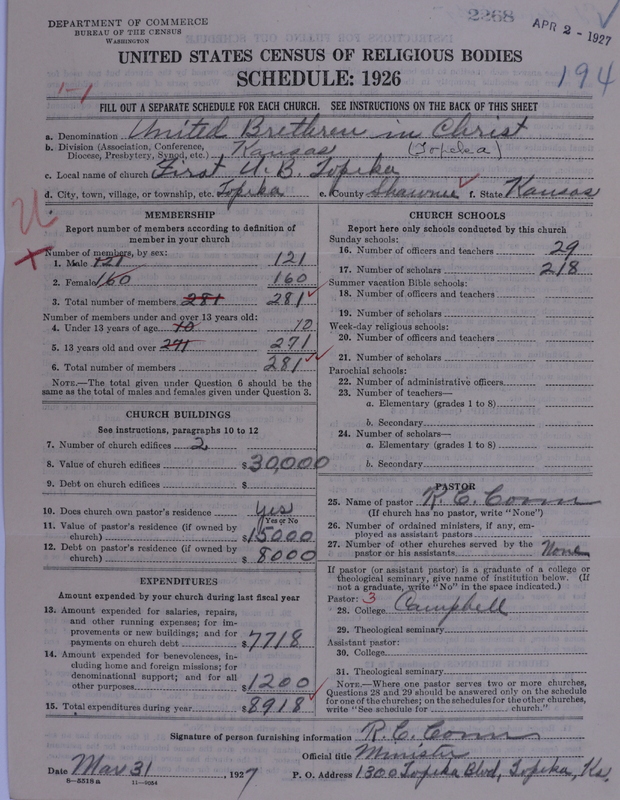 DEPARTMENT OF COMMERCE
BUREAU OF THE CENSUS
WASHINGTON
2268
APR 2 - 1927
194
UNITED STATES CENSUS OF RELIGIOUS BODIES
SCHEDULE: 1926
1-1
FILL OUT A SEPARATE SCHEDULE FOR EACH CHURCH. SEE INSTRUCTIONS ON THE BACK OF THIS SHEET
a. Denomination United Brethren in Christ
b. Division (Association, Conference, Diocese, Presbytery, Synod, etc.) Kansas (Topeka)
c. Local name of church First U. B. Topeka
d. City, town, village, or township, etc. Topeka e. County Shawnee f. State Kansas
MEMBERSHIP
Report number of members according to definition of
member in your church
Number of members, by sex:
1. Male 121 121
2. Female 160 160
3. Total number of members 281 281
Number of members under and over 13 years old:
4. Under 13 years of age 10 10
5. 13 years old and over 271 271
6. Total number of members 281
NOTE.—The total given under Question 6 should be the
same as the total of males and females given under Question 3.
CHURCH BUILDINGS
See instructions, paragraphs 10 to 12
7. Number of church edifices 2
8. Value of church edifices $30,000
9. Debt on church edifices $
10. Does church own pastor's residence yes
Yes or No
11. Value of pastor's residence (if owned by
church) $15000
12. Debt on pastor's residence (if owned by
church) $8000
EXPENDITURES
Amount expended by your church during last fiscal year
13. Amount expended for salaries, repairs,
and other running expenses; for im-
provements or new buildings; and for
payments on church debt $7718
14. Amount expended for benevolences, in-
cluding home and foreign missions; for
denominational support; and for all
other purposes $1200
15. Total expenditures during year $8918
CHURCH SCHOOLS
Report here only schools conducted by this church
Sunday schools:
16. Number of officers and teachers 29
17. Number of scholars 218
Summer vacation Bible schools:
18. Number of officers and teachers
19. Number of scholars
Week-day religious schools:
20. Number of officers and teachers
21. Number of scholars
Parochial schools:
22. Number of administrative officers
23. Number of teachers—
a. Elementary (grades 1 to 8)
b. Secondary
24. Number of scholars—
a. Elementary (grades 1 to 8)
b. Secondary
PASTOR
25. Name of pastor R. C. Conn
(If church has no pastor, write "None")
26. Number of ordained ministers, if any, em-
ployed as assistant pastors
27. Number of other churches served by the
pastor or his assistants None
If pastor (or assistant pastor) is a graduate of a college or
theological seminary, give name of institution below. (If
not a graduate, write "No" in the space indicated.)
Pastor: 3
28. College Campbell
29. Theological seminary
Assistant pastor:
30. College
31. Theological seminary
NOTE.—Where one pastor serves two or more churches,
Questions 28 and 29 should be answered only on the schedule
for one of the churches; on the schedules for the other churches,
write "See schedule for church."
Signature of person furnishing information R. C. Conn
Official title Minister
Date Mar 31, 1927 P. O. Address 1300 Topeka Blvd, Topeka, Ks.
8-5518a 11-9054